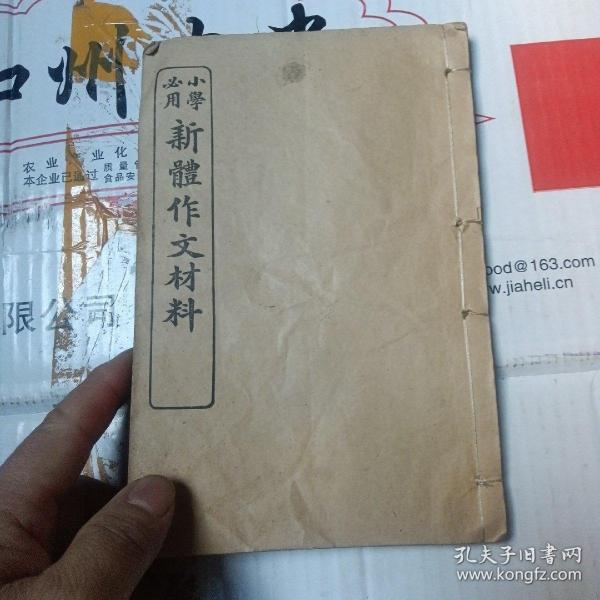 小學
必用
新體作文材料
州
农业 业化
质量
本企业已通过 食品安
限公司
ood@163.com
w.jiaheli.cn
孔夫子旧书网
www.kongfz.com